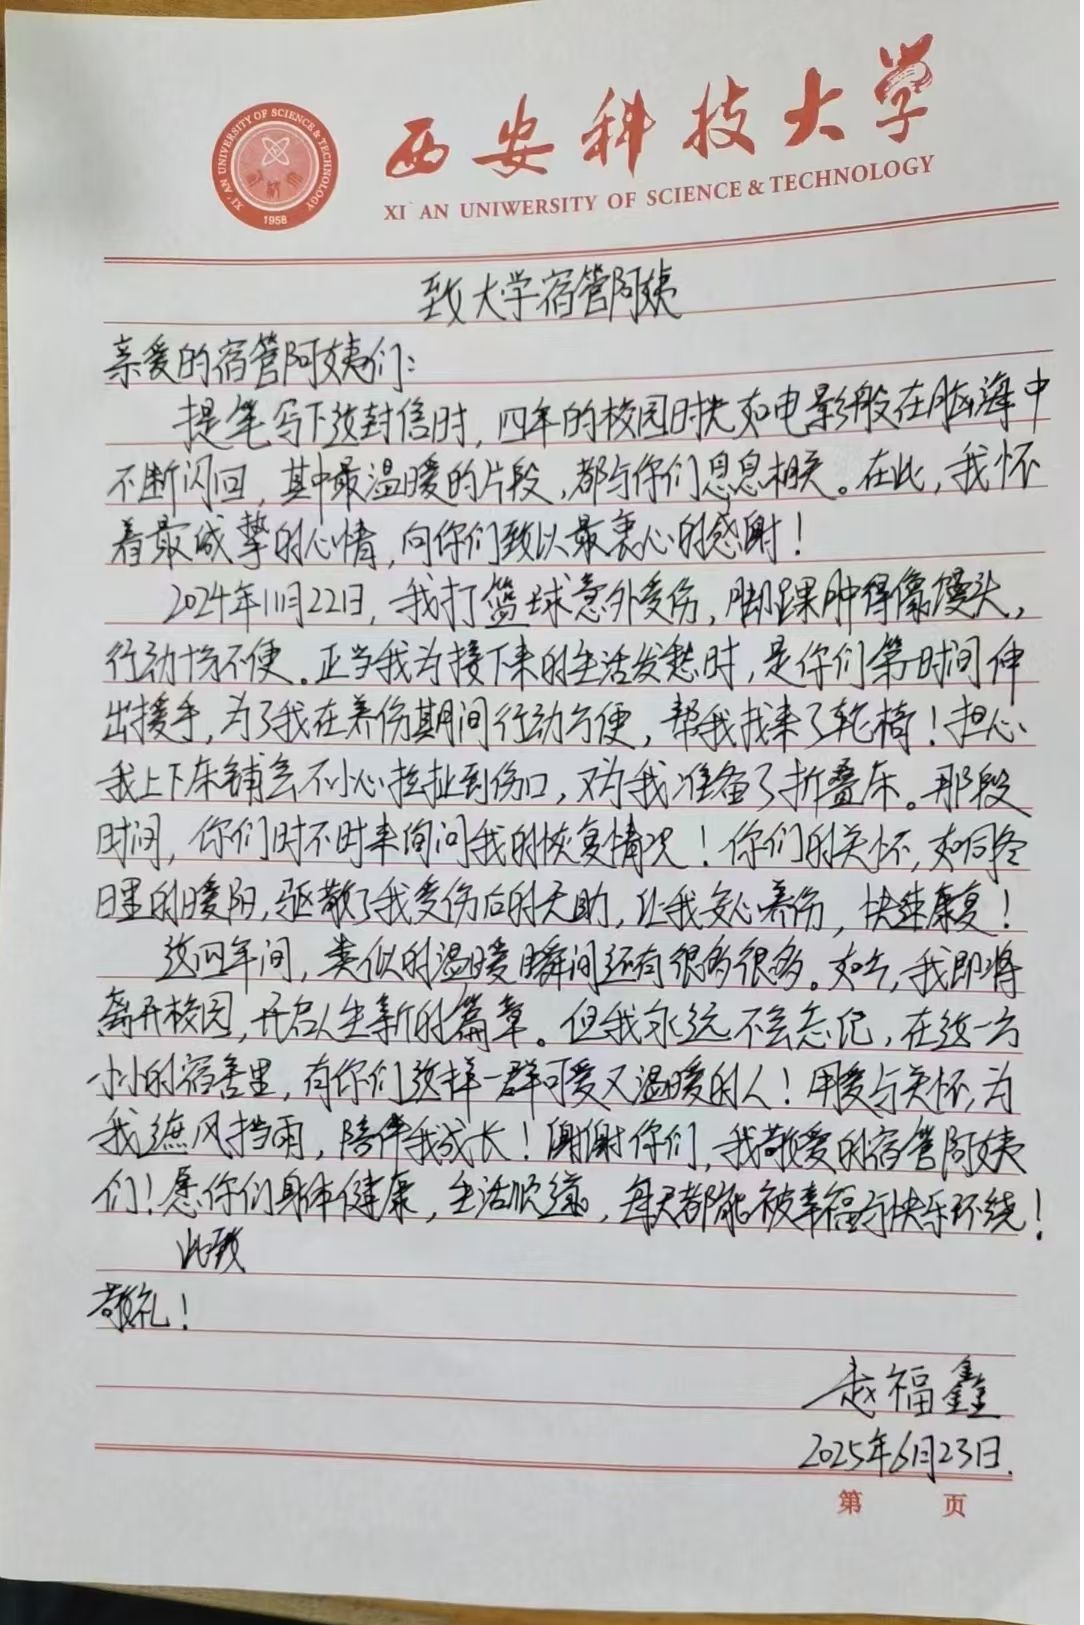 XI'AN UNIVERSITY OF SCIENCE & TECHNOLOGY
1958
西安科技大学
XI`AN UNIWERSITY OF SCIENCE & TECHNOLOGY
致大学宿管阿姨
亲爱的宿管阿姨们:
提笔写下这封信时，四年的校园时光如电影般在脑海中
不断闪回，其中最温暖的片段，都与你们息息相关。在此，我怀
着最诚挚的心情，向你们致以最衷心的感谢！
2024年11月22日，我打篮球意外受伤，脚踝肿得像馒头，
行动十分不便。正当我为接下来的生活发愁时，是你们第一时间伸
出援手，为了我在养伤期间行动方便，帮我找来了轮椅！担心
我上下床铺会不小心拉扯到伤口，又为我准备了折叠床。那段
时间，你们时不时来询问我的恢复情况！你们的关怀，如同冬
日里的暖阳，驱散了我受伤后的无助，让我安心养伤，快速康复！
这四年间，类似的温暖瞬间还有很多很多。如今，我即将
离开校园，开启人生新的篇章。但我永远不会忘记，在这一方
小小的宿舍里，有你们这样一群可爱又温暖的人！用爱与关怀，为
我遮风挡雨，陪伴我成长！谢谢你们，我敬爱的宿管阿姨
们！愿你们身体健康，生活顺遂，每天都能被幸福与快乐环绕！
此致
敬礼！
赵福鑫
2025年6月23日.
第 页